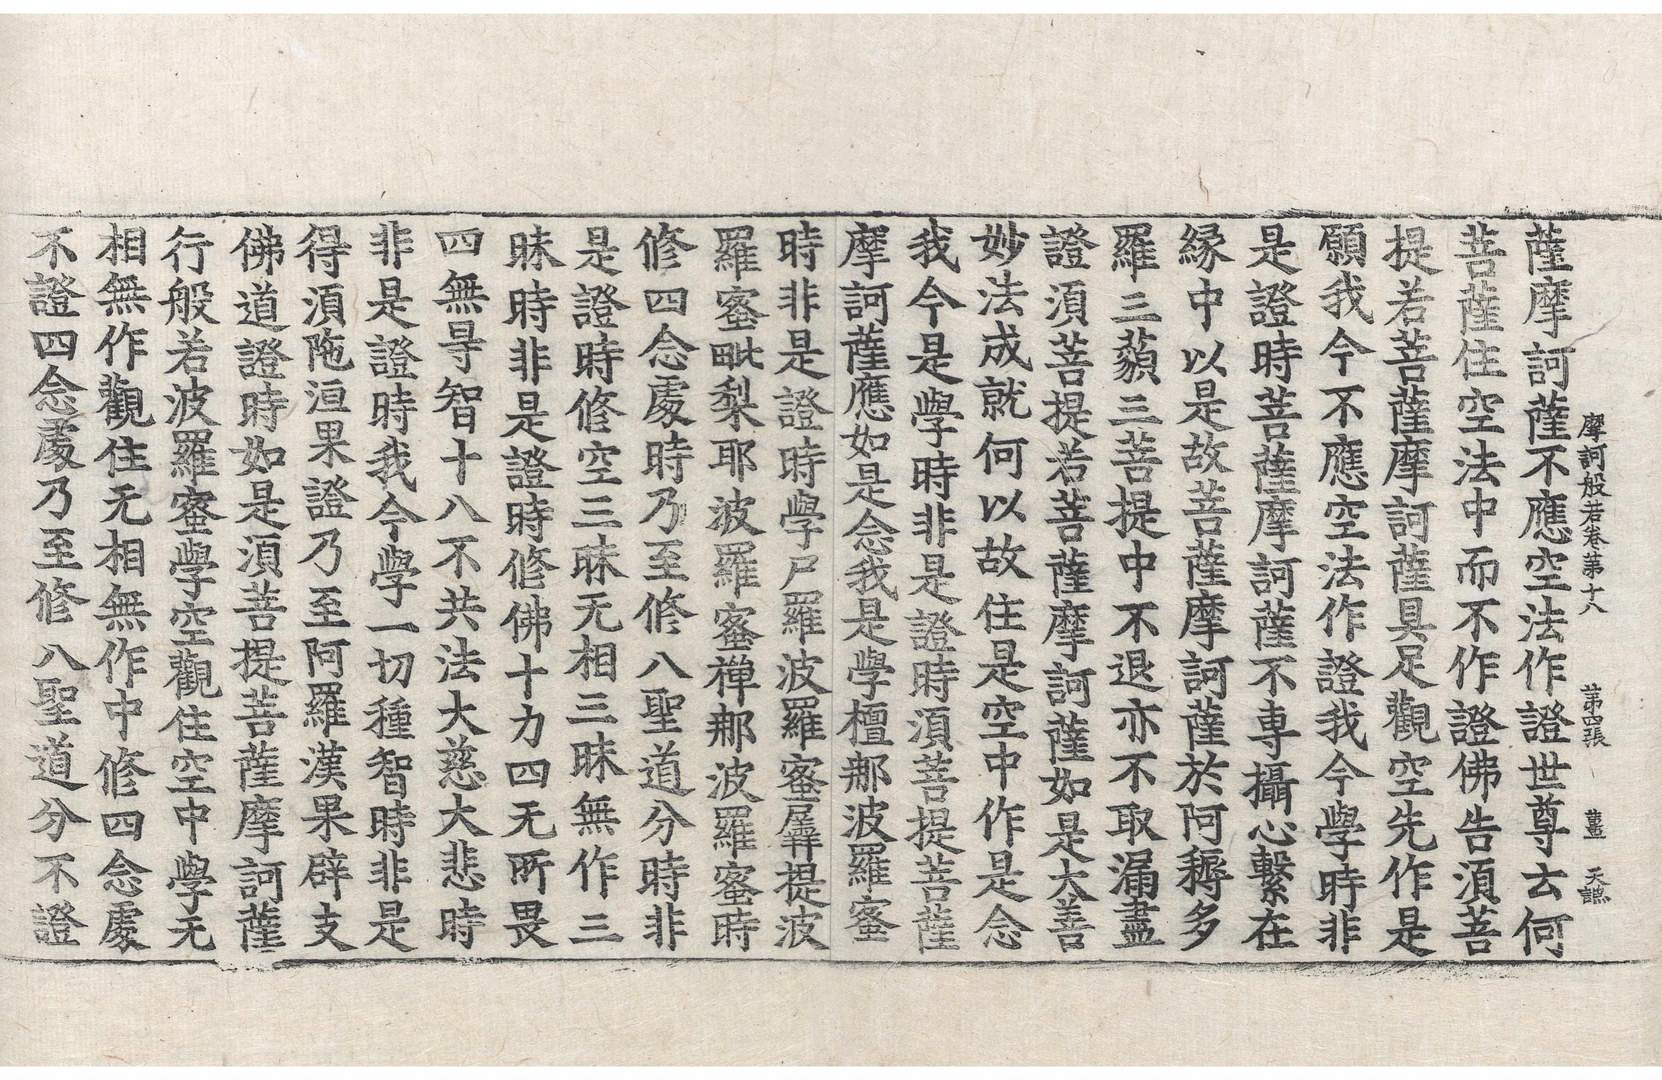 摩訶般若卷第十八 第四張 薑 天譙
薩摩訶薩不應空法作證世尊云何
菩薩住空法中而不作證佛告湏菩
提若菩薩摩訶薩具足觀空先作是
願我今不應空法作證我今學時非
是證時菩薩摩訶薩不專攝心繫在
緣中以是故菩薩摩訶薩於阿耨多
羅三藐三菩提中不退亦不取漏盡
證湏菩提若菩薩摩訶薩如是大善
妙法成就何以故住是空中作是念
我今是學時非是證時湏菩提菩薩
摩訶薩應如是念我是學檀那波羅蜜
時非是證時學尸羅波羅蜜羼提波
羅蜜毗梨耶波羅蜜禅那波羅蜜時
修四念處時乃至修八聖道分時非
是證時修空三昧无相三昧無作三
昧時非是證時修佛十力四无所畏
四無㝵智十八不共法大慈大悲時
非是證時我今學一切種智時非是
得湏陁洹果證乃至阿羅漢果辟支
佛道證時如是湏菩提菩薩摩訶薩
行般若波羅蜜學空觀住空中學无
相無作觀住无相無作中修四念處
不證四念處乃至修八聖道分不證